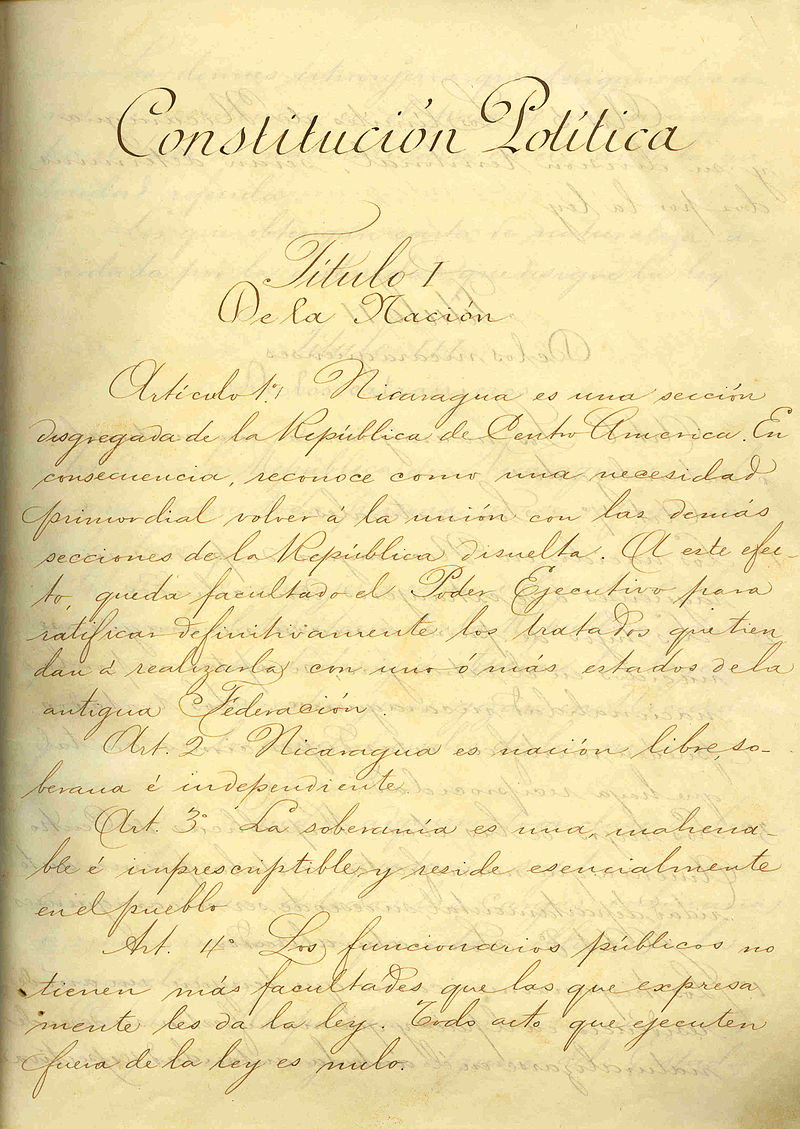 Constitución Política
Título I
De la Nación
Artículo 1º Nicaragua es una sección
disgregada de la República de Centro America. En
consecuencia, reconoce como una necesidad
primordial volver á la unión con las demás
secciones de la República disuelta. A este efec-
to, queda facultado el Poder Ejecutivo para
ratificar definitivamente los tratados que tien
dan á realizarla con uno ó más estados de la
antigua Federación.
Art. 2º Nicaragua es nación libre, so-
berana é independiente.
Art. 3º La soberanía es una, inaliena-
ble é imprescriptible, y reside esencialmente
en el pueblo
Art. 4º Los funcionarios públicos no
tienen más facultades que las que expresa
mente les da la ley. Todo acto que ejecuten
fuera de la ley es nulo.